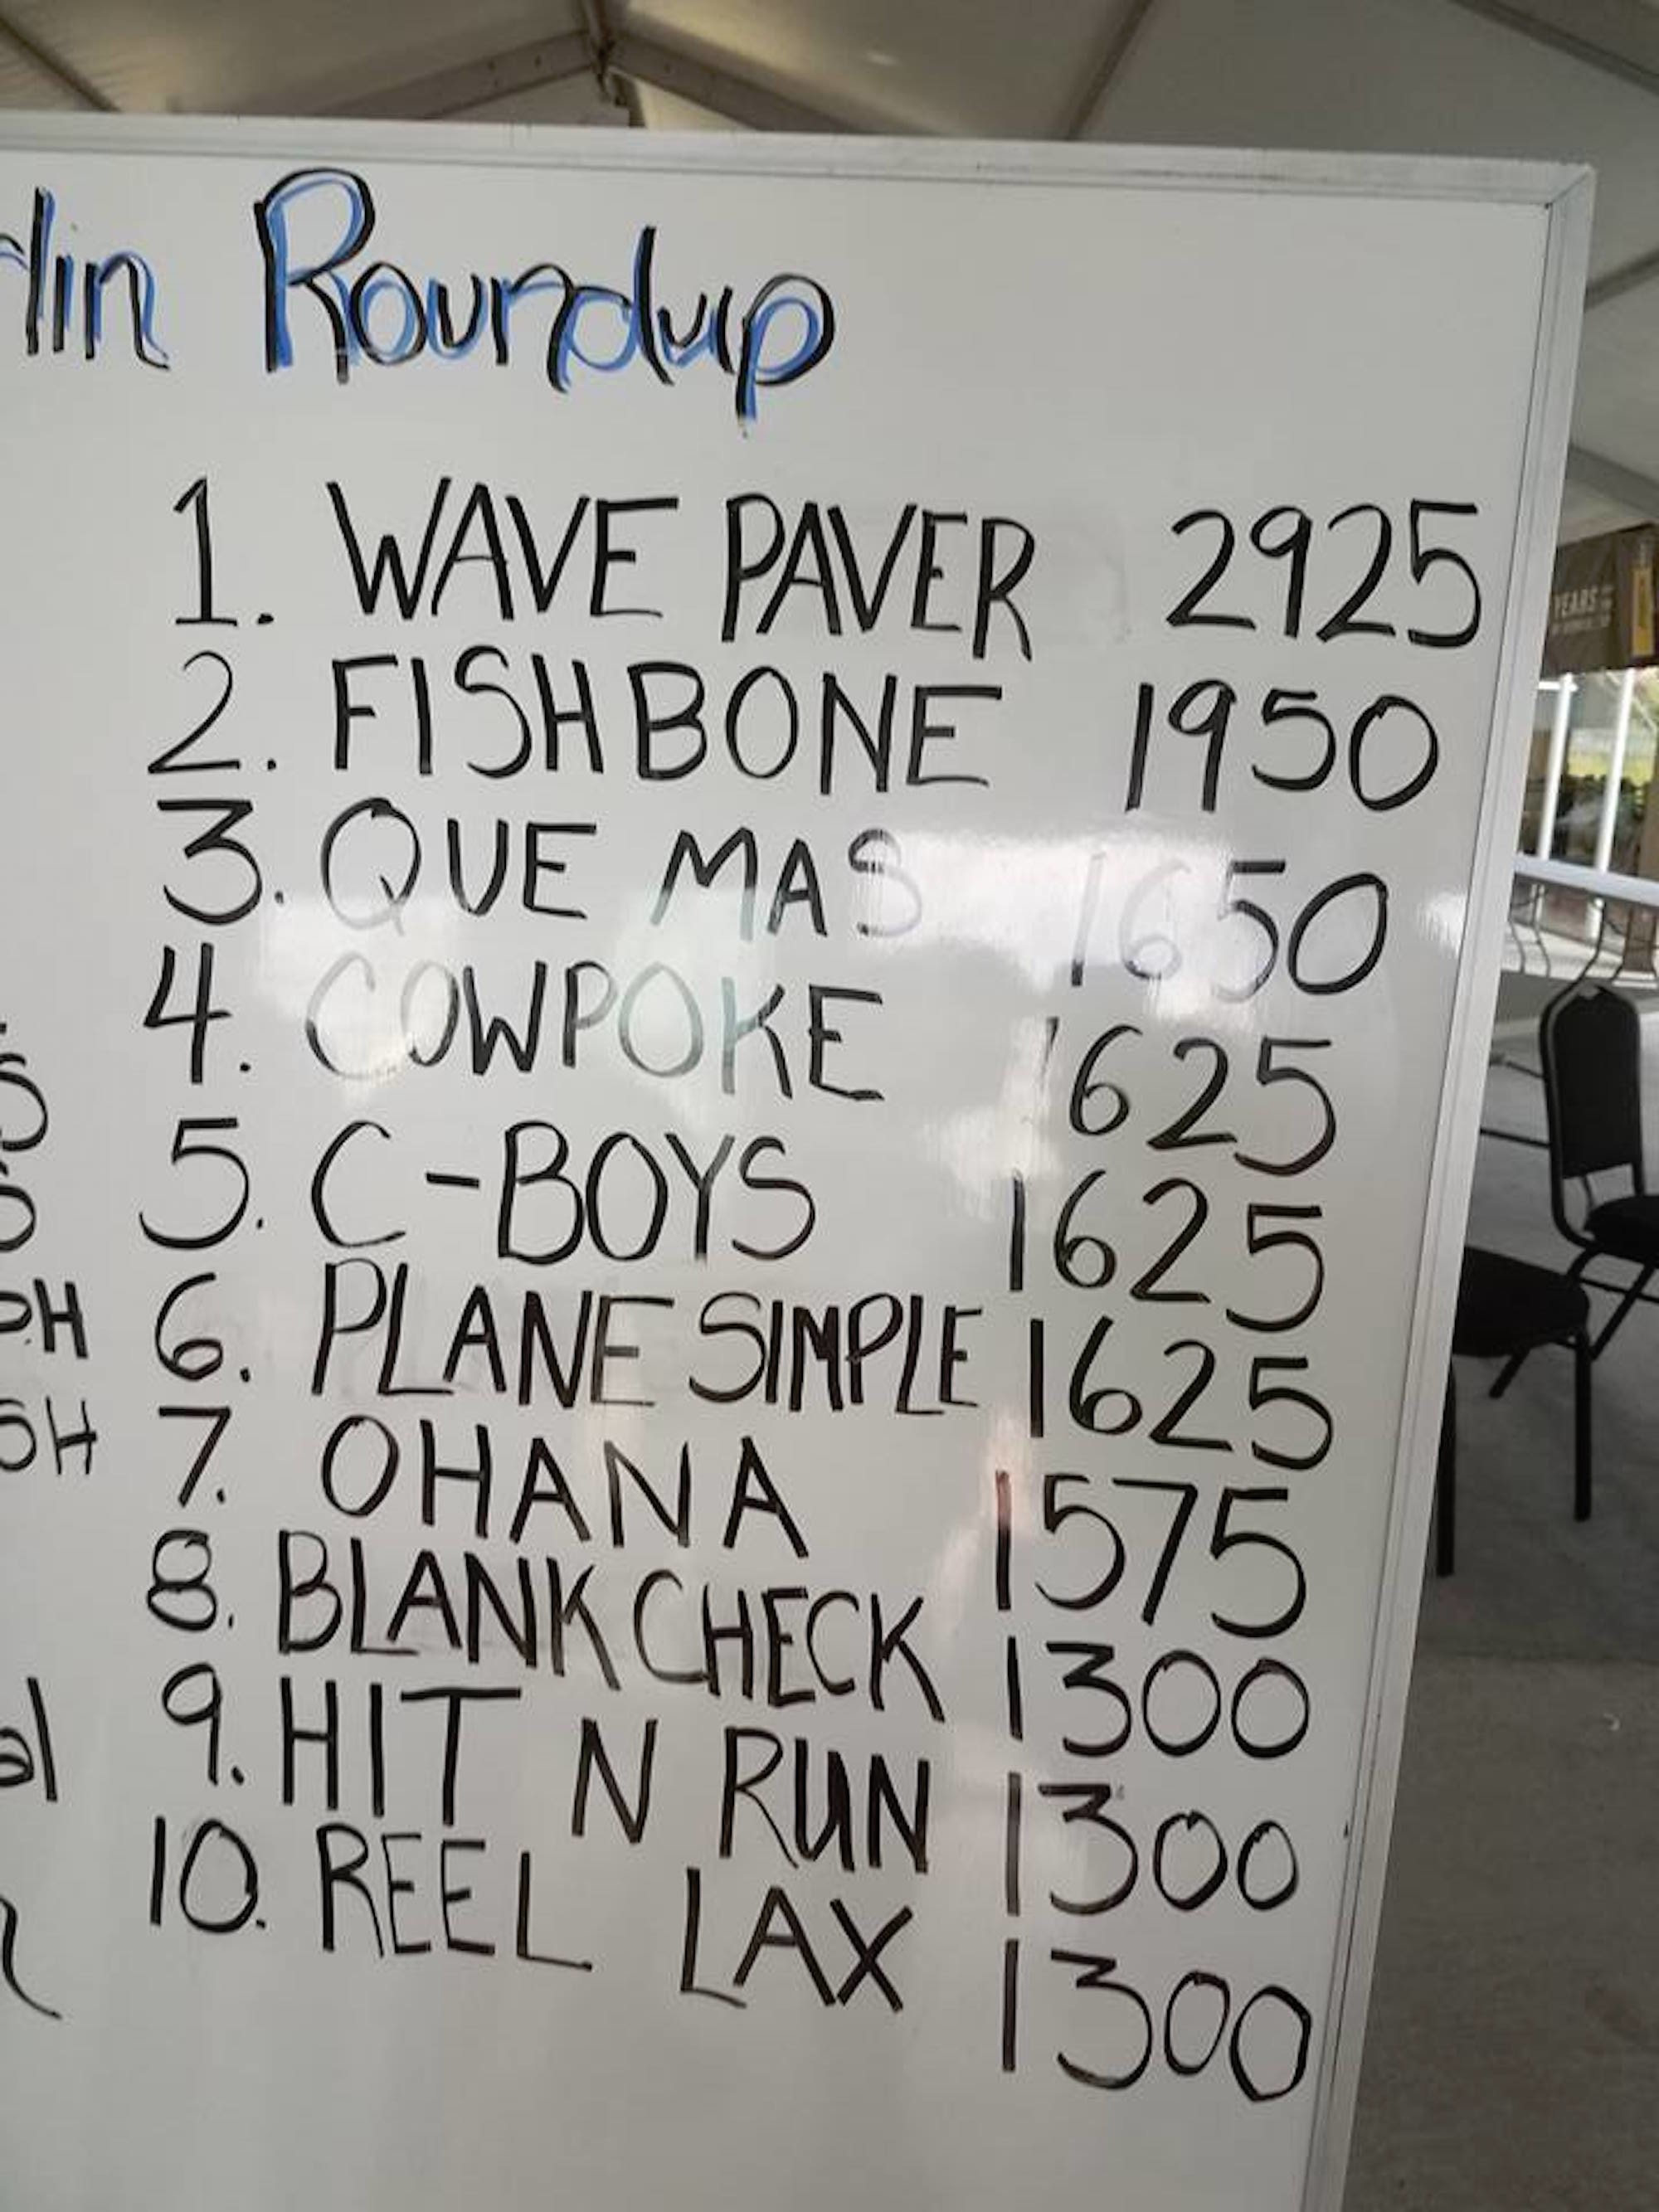 lin Roundup
1. WAVE PAVER 2925
2. FISHBONE 1950
3. QUE MAS 1650
4. COWPOKE 1625
5. C-BOYS 1625
6. PLANE SIMPLE 1625
7. OHANA 1575
8. BLANK CHECK 1300
9. HIT N RUN 1300
10. REEL LAX 1300
YEARS